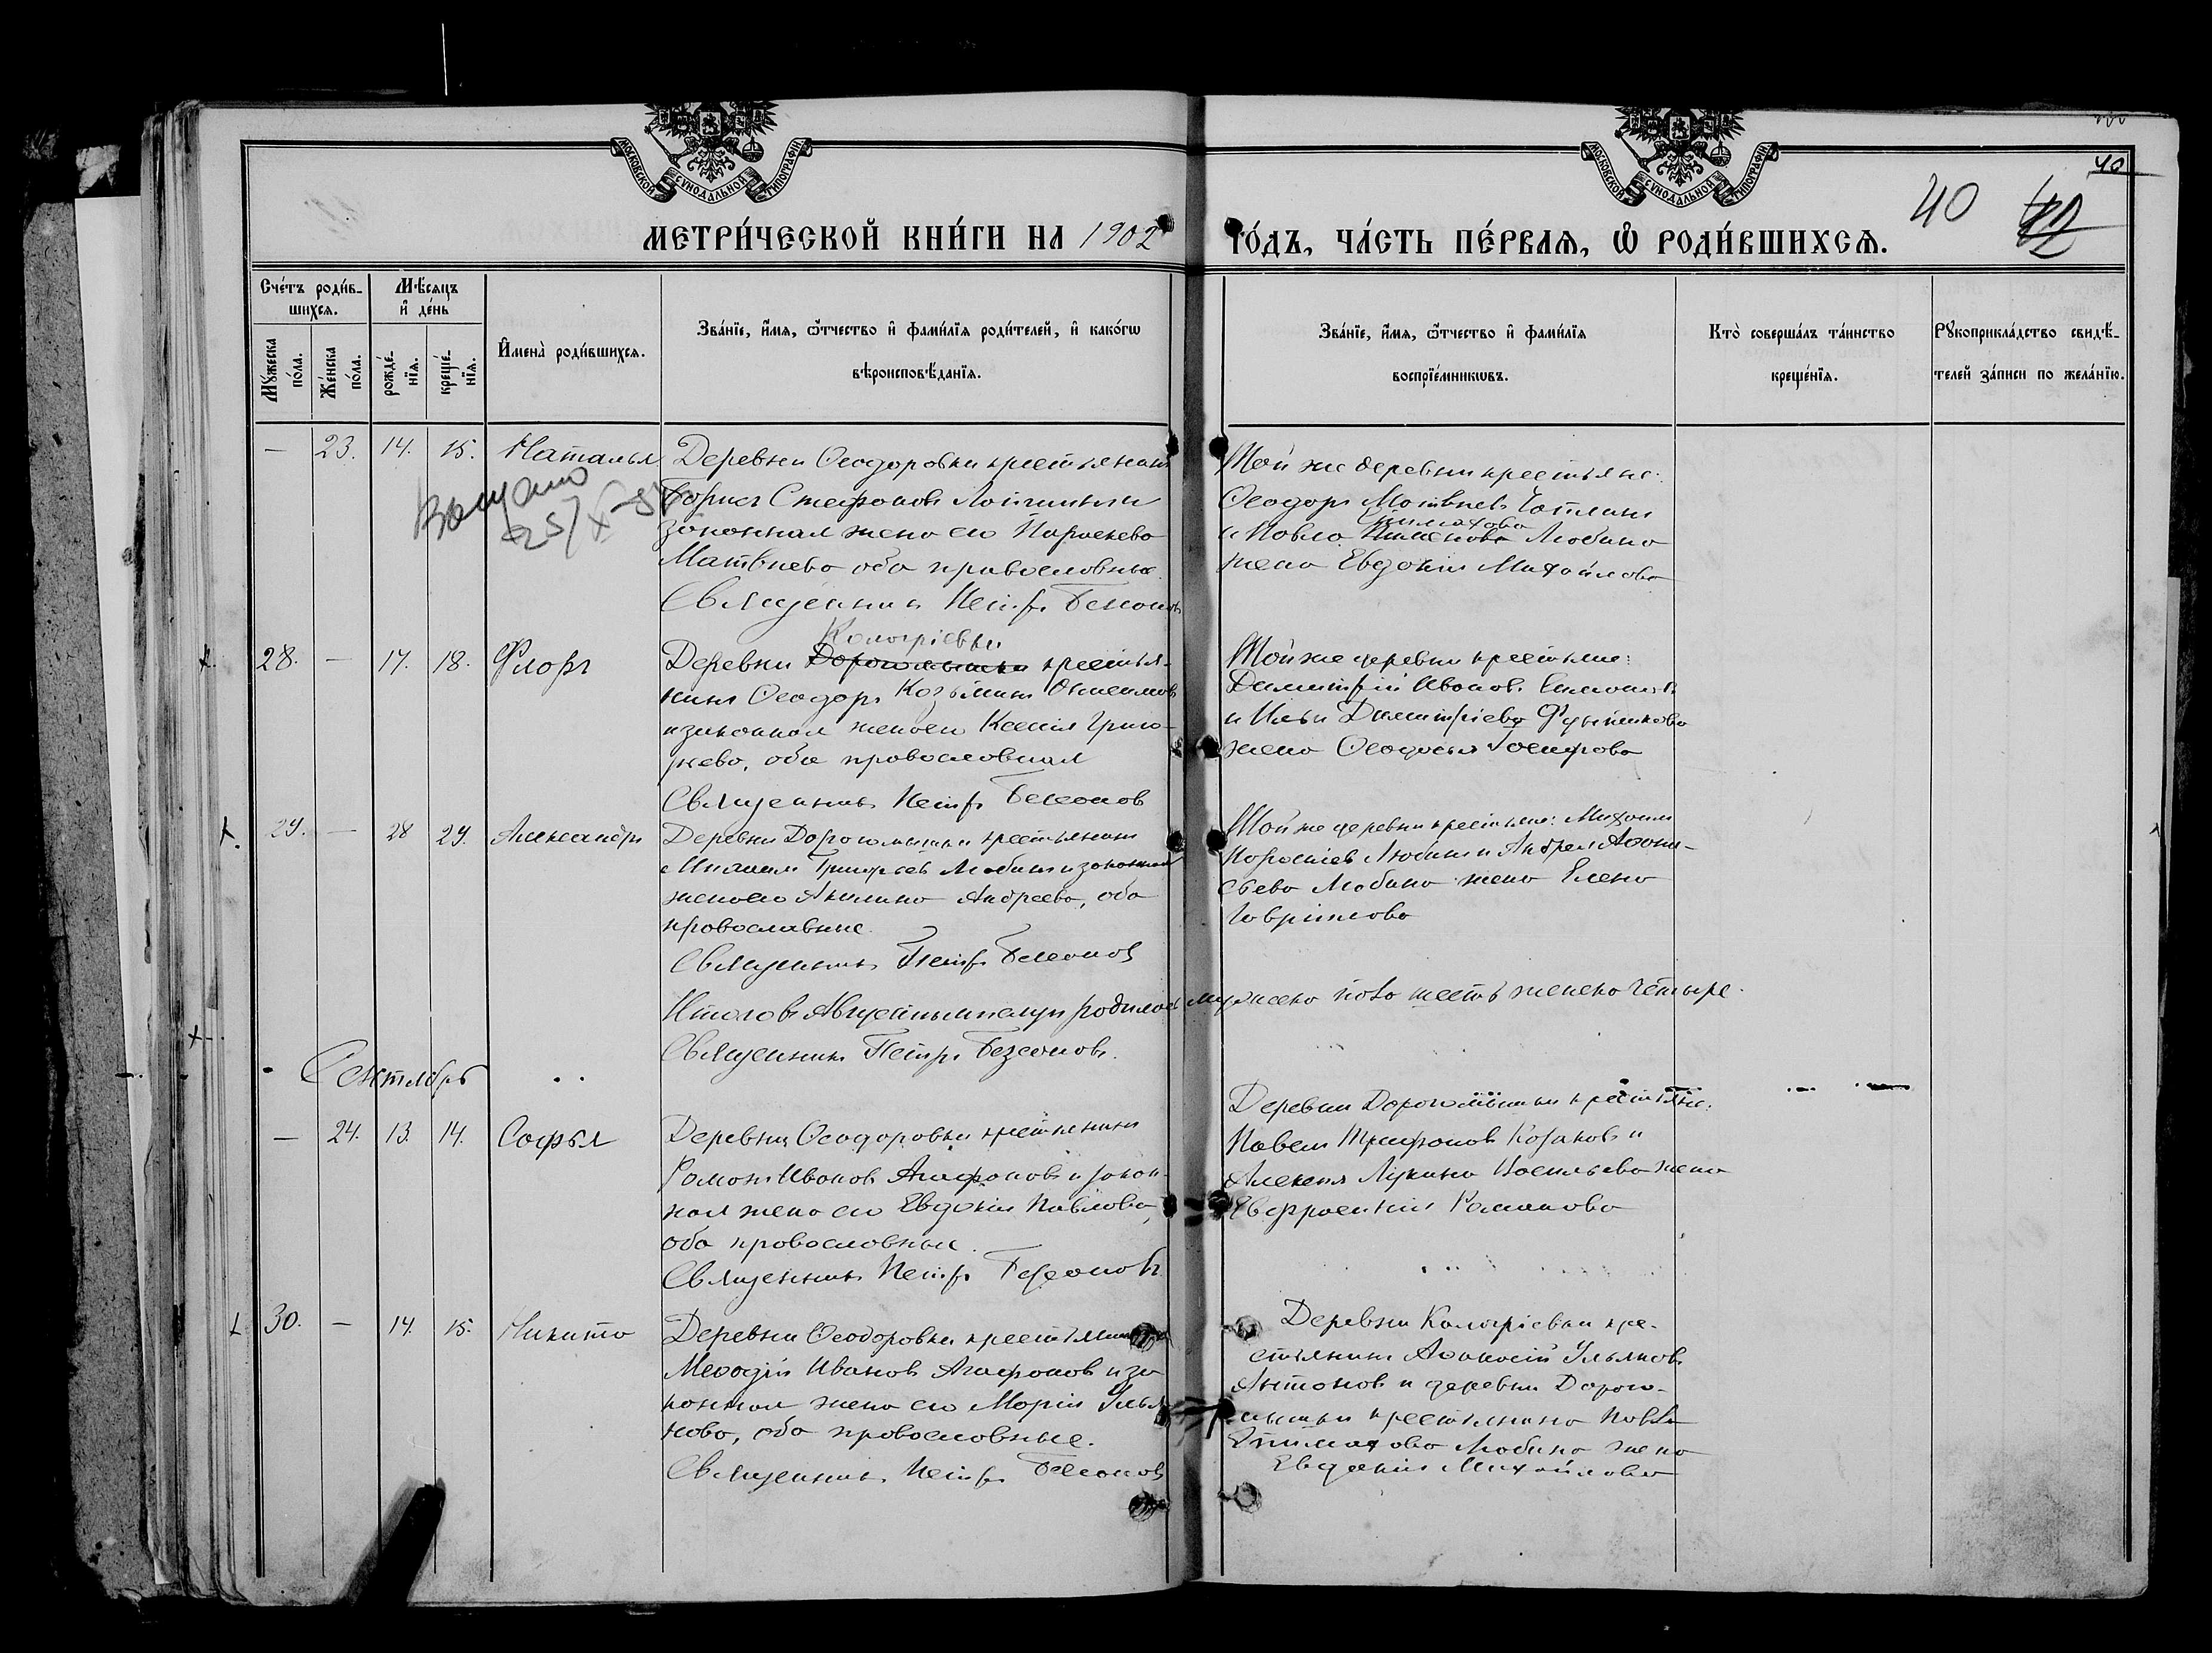 МОСКОВСКОЙ СѴНОДАЛЬНОЙ ТИПОГРАФІИ
МОСКОВСКОЙ СѴНОДАЛЬНОЙ ТИПОГРАФІИ
40
40
МЕТРИ́ЧЕСКОЙ КНИ́ГИ НА 1902
ГО́ДЪ, ЧА́СТЬ ПЕ́РВАѦ, Ѽ РОДИ́ВШИХСѦ.
Сче́тъ роди́в-
шихсѧ.
Мѣ́сѧцъ
и҆ де́нь
Мꙋ́жеска
по́ла.
Же́нска
по́ла.
рожде́-
нїѧ.
креще́-
нїѧ.
И҆мена̀ роди́вшихсѧ.
Зва́нїе, и҆́мѧ, ѻ҆́тчество и҆ фами́лїѧ роди́телей, и҆ како́гѡ
вѣроисповѣ́данїѧ.
Зва́нїе, и҆́мѧ, ѻ҆́тчество и҆ фами́лїѧ
воспрїе́мникѡвъ.
Кто̀ соверша́лъ та́инство
креще́нїѧ.
Рꙋкоприкла́дство свидѣ́-
телей за́писи по жела́нїю.
— 23. 14. 15. Наталья
Деревни Ѳеодоровки крестьянинъ
Борисъ Стефановъ
законная жена его Параскева
Матвѣева оба православные.
Священникъ Петръ Бессоновъ
Той же деревни крестьяне:
Ѳеодоръ Матвѣевъ
Епимахова
и Павла Любина
жена Евдокія Михайлова
25/X
28. — 17. 18. Флоръ
Кологріевки
Деревни Дорогомышки крестья-
нинъ Ѳеодоръ Козьминъ
и законная жена его Ксенія Григо-
рьева, оба православныя
Священникъ Петръ Бессонов
Той же деревни крестьяне:
Димитрій Ивановъ
и Ильи Димитріева
жена Ѳеодосья Іосифова
29. — 28 29. Александръ
Деревни Дорогомышки крестьянинъ
Михаилъ Григорьев Любинъ и законная
жена его Акилина Андреева, оба
православные.
Священникъ Петръ Бессоновъ
Той же деревни крестьяне: Михаилъ
Любинъ и Андрея Аѳона-
сьева Любина жена Елена
Гаврiилова
Итого въ Августѣ мѣсяцѣ родилось мужеска пола шесть женска четыре.
Священникъ Петръ Безсоновъ.
Сентябрь
— 24. 13. 14. Софья
Деревни Ѳеодоровки крестьянинъ
Романъ Ивановъ Агафоновъ и закон-
ная жена его Евдокія Павлова,
оба православные.
Священникъ Петръ Бессоновъ
Деревни Дорогомышки крестьяне:
Павелъ Трифоновъ Казаковъ и
Алексѣя Лукина Васильева жена
Евфросинія Романова
30. — 14. 15. Никита
Деревни Ѳеодоровки крестьянинъ
Меѳодій Ивановъ Агафоновъ и за-
конная жена его Марія Улья-
нова, оба православные.
Священникъ Петръ Бессоновъ
Деревни Кологріевки кре-
стьянинъ Аѳанасій Ульяновъ
Антоновъ и деревни Дорого-
мышки крестьянина Павла
Епимахова Любина жена
Евдокія Михайлова